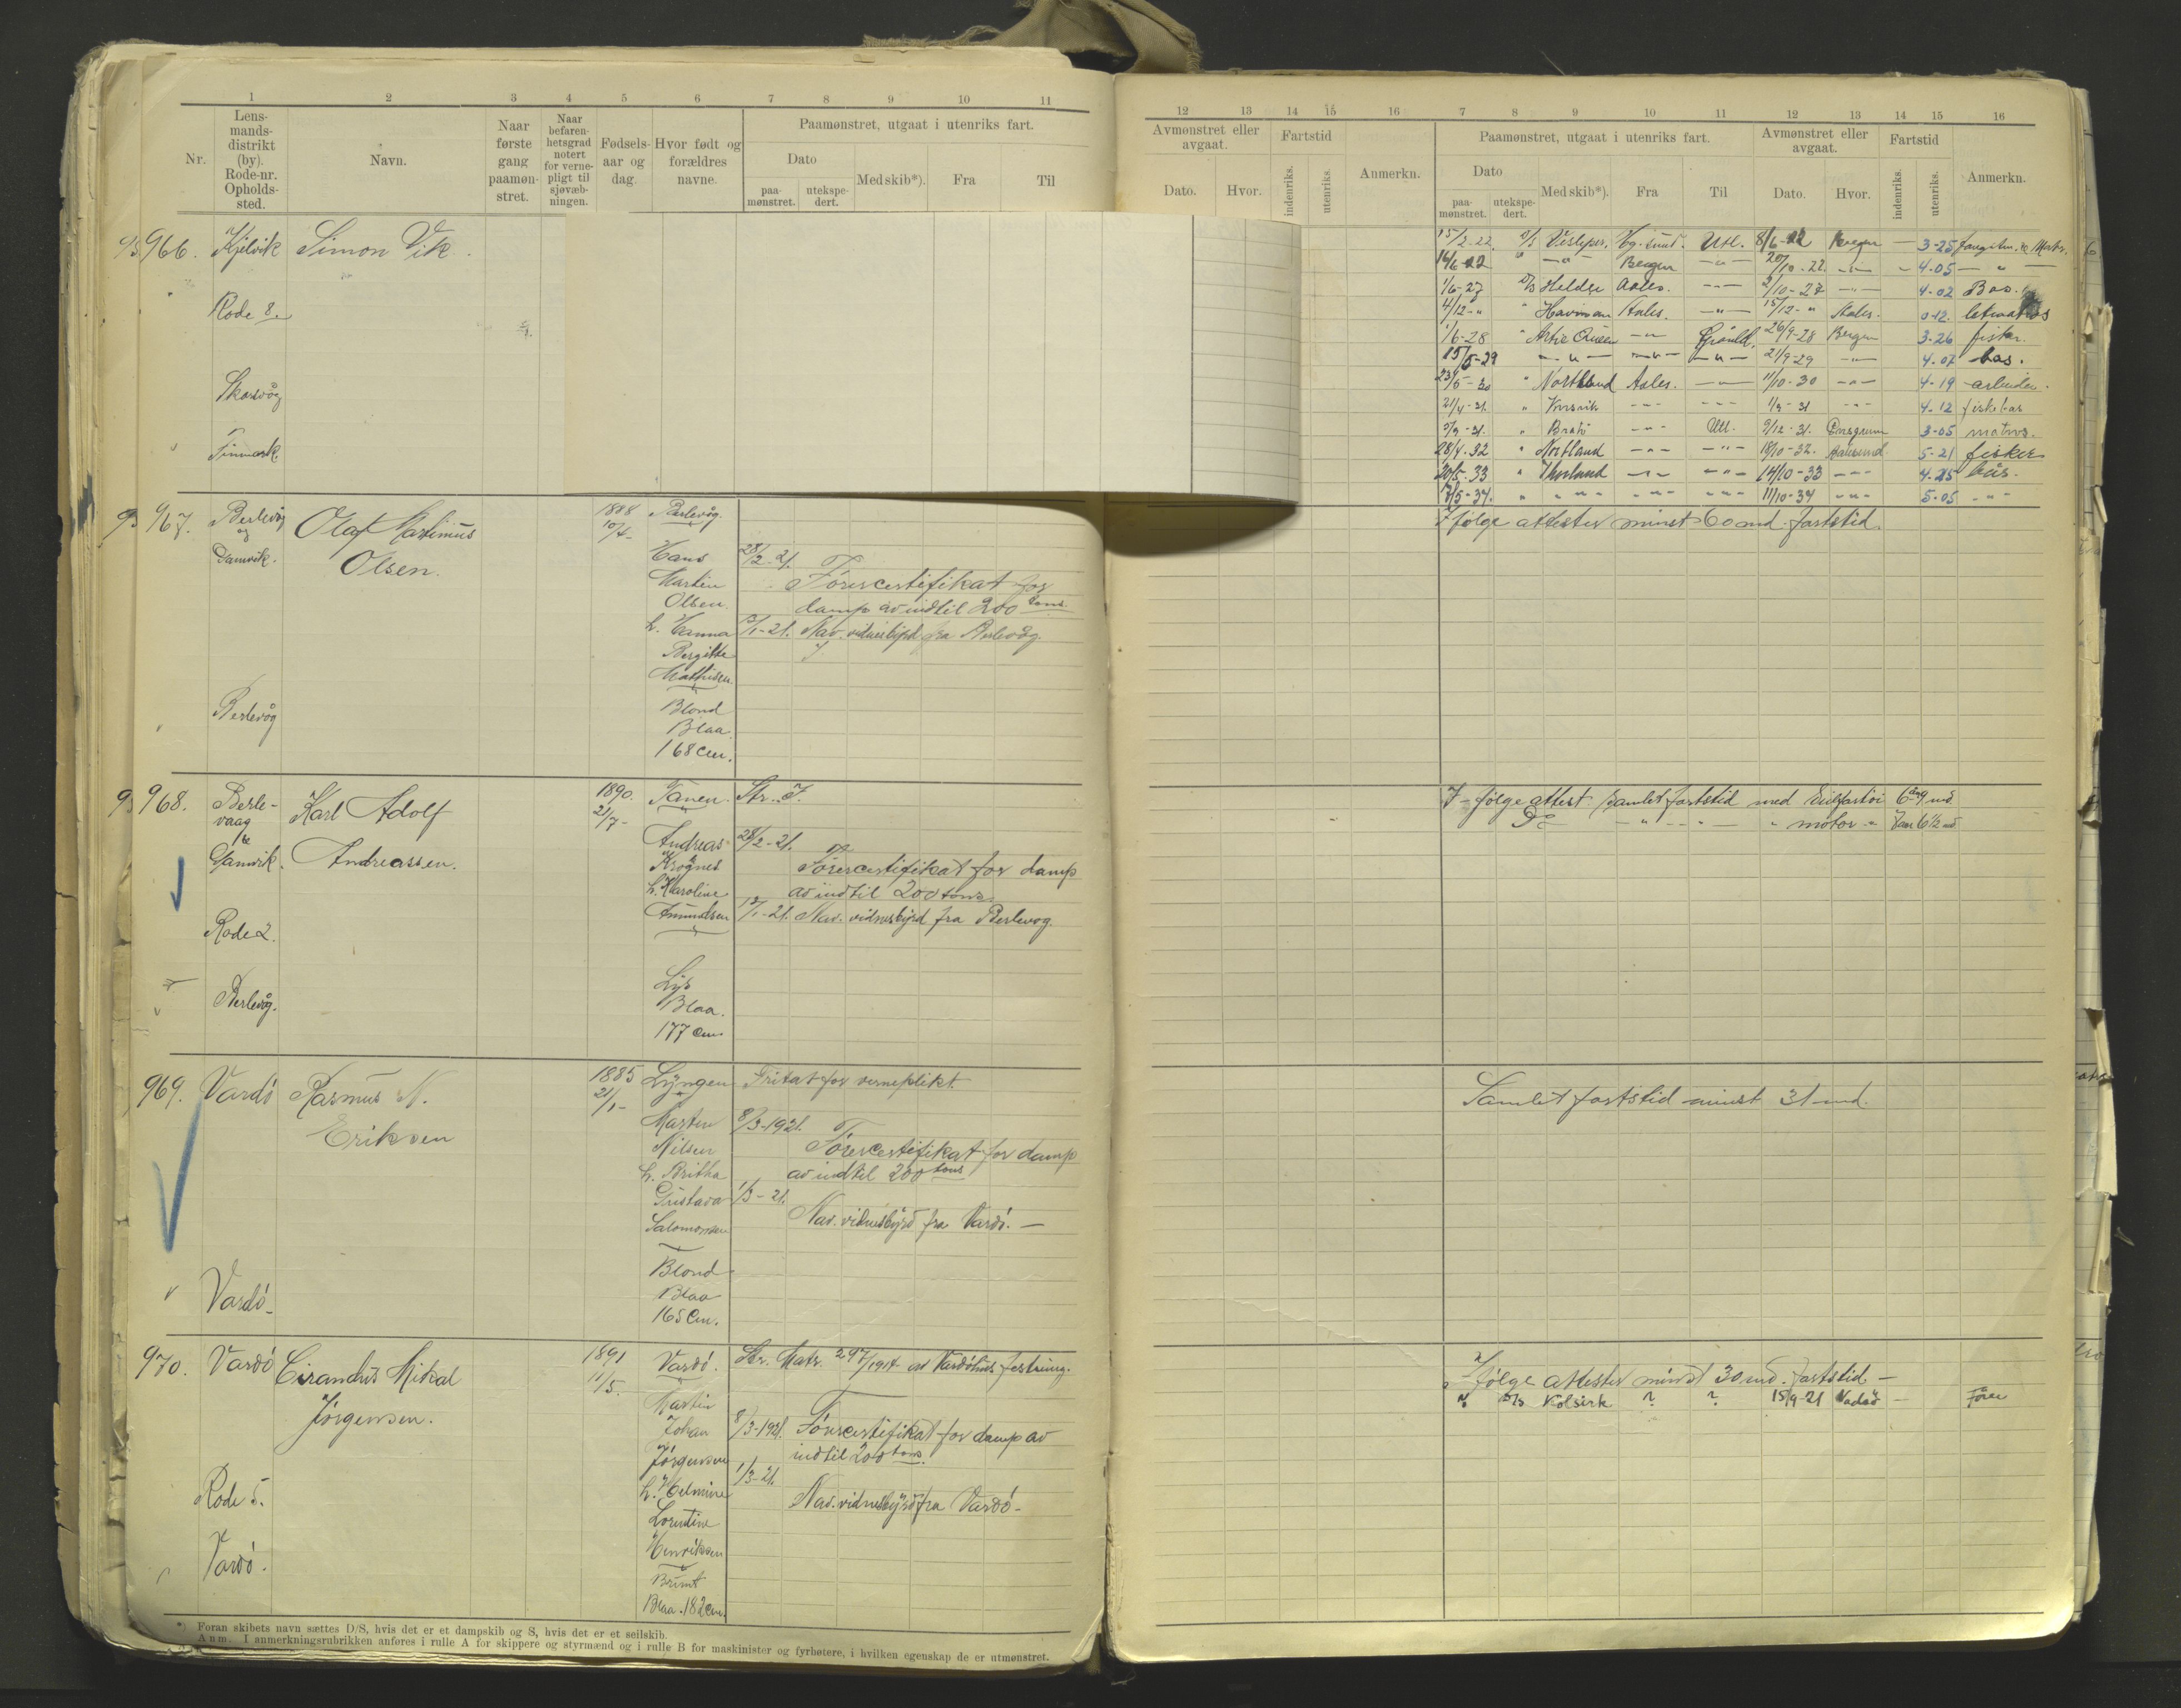 1 2 3 4 5 6 7 8 9 10 11
Nr.
Lens-
mands-
distrikt
(by).
Rode-nr.
Opholds-
sted.
Navn.
Naar
første
gang
paamøn-
stret.
Naar
befaren-
hetsgrad
notert
for verne-
pligt til
sjøvæb-
ningen.
Fødsels-
aar og
dag.
Hvor født og
forældres
navne.
Paamønstret, utgaat i utenriks fart.
Dato
paa-
mønstret.
utekspe-
dert.
Med skib*).
Fra
Til
966. Kjelvik Simon Vik.
Rode 8.
Skarsvåg
Finmark.
967. Berlevåg
og
Gamvik.
Olaf Martinus
Olsen.
1888
10/4-
Berlevåg.
Hans
Martin
Olsen.
h. Hanna
Bergitte
Mathisen.
28/2-21. Førercertifikat for
damp av indtil 200 tons.
Nav. vidnesbyrd fra Berlevåg.
Berlevåg
Blond
Blaa.
168 cm.
968. Berle-
vaag
Gamvik.
Karl Adolf
Andreassen.
1890.
21/7-
Tanen.
Andreas
h. Karoline
Amundsen
28/2-21.
Førercertifikat for damp
av indtil 200 tons.
Nav. vidnesbyrd fra Berlevog.
Rode 2.
Berlevåg.
Lys
Blaa.
177 cm.
969. Vardö Rasmus N.
Eriksen
1885
21/1-
Lyngen
Fritat for verneplikt
Morten
Nilsen
h. Britha
Gustava
Salomonsen
8/3-1921.
Førercertifikat for damp
av indtil 200 tons
1/3-21.
Nav. vidnesbyrd fra Vardö. —
Vardö-
Blond
Blaa
165 cm.
970. Vardö
Mikal
Jörgensen.
1891
11/5.
Vardö.
Str. Matr. 297/1914 ved Vardöhus festning.
Martin
Johan
Jörgensen
Lorentine
Henriksen
8/3-1921. Førercertifikat for damp av
indtil 200 tons.
1/3-21.
Nav. vidnesbyrd fra Vardö-
Rode 5.
Vardö.
Brunt
Blaa. 182 cm.
*) Foran skibets navn sættes D/S, hvis det er et dampskib og S, hvis det er et seilskib.
Anm. I anmerkningsrubrikken anføres i rulle A for skippere og styrmænd og i rulle B for maskinister og fyrbøtere, i hvilken egenskap de er utmønstret.
12 13 14 15 16 7 8 9 10 11 12 13 14 15 16
Avmønstret eller
avgaat.
Dato.
Hvor.
Fartstid
indenriks.
utenriks.
Anmerkn.
Paamønstret, utgaat i utenriks fart.
Dato
paa-
mønstret.
utekspe-
dert.
Med skib*).
Fra
Til
Avmønstret eller
avgaat.
Dato.
Hvor.
Fartstid
indenriks.
utenriks.
Anmerkn.
15/2-22. Utl. 8/6-22 Bergen — 3-25
16/6-22 — " — Bergen — " — 20/10-22. — " — 4-05 — " —
1/6-27 Aales. — " — 2/10-27 — " — 4-02 Bas.
4/12-" Aales. — " — 15/12-" Aales. 0-12. letmatros
1/6-28 " Artic Queen — " — Grönld. 26/9-28 Bergen 3-26 fisker.
15/5-29 — " — — " — — " — 21/9-29 — " — 4-07 bas.
23/5-30 " Nortland Aales. — " — 11/10-30 — " — 4-19 arbeider.
21/4-31. — " — — " — 1/9-31 — " — 4-12 fiskebas
3/9-31. — " — Utl. 9/12-31. 3-05 matros.
28/4-32 " Nortland — " — — " — 18/10-32. Aalesund 5-21 fisker
20/5-33 — " — — " — 14/10-33 — " — 4-25 bås.
7/5-34. " — " — — " — — " — 11/10-34 — " — 5-05 — " —
I fölge attester minst 60 md. fartstid.
I fölge attest samlet fartstid med
Do — " — — " — " motor "
Samlet fartstid minst 31 md.
I fölge attester minst 30 md. fartstid —
? D/S Kolseik ? ? 15/9-21 Vadsö — Förer